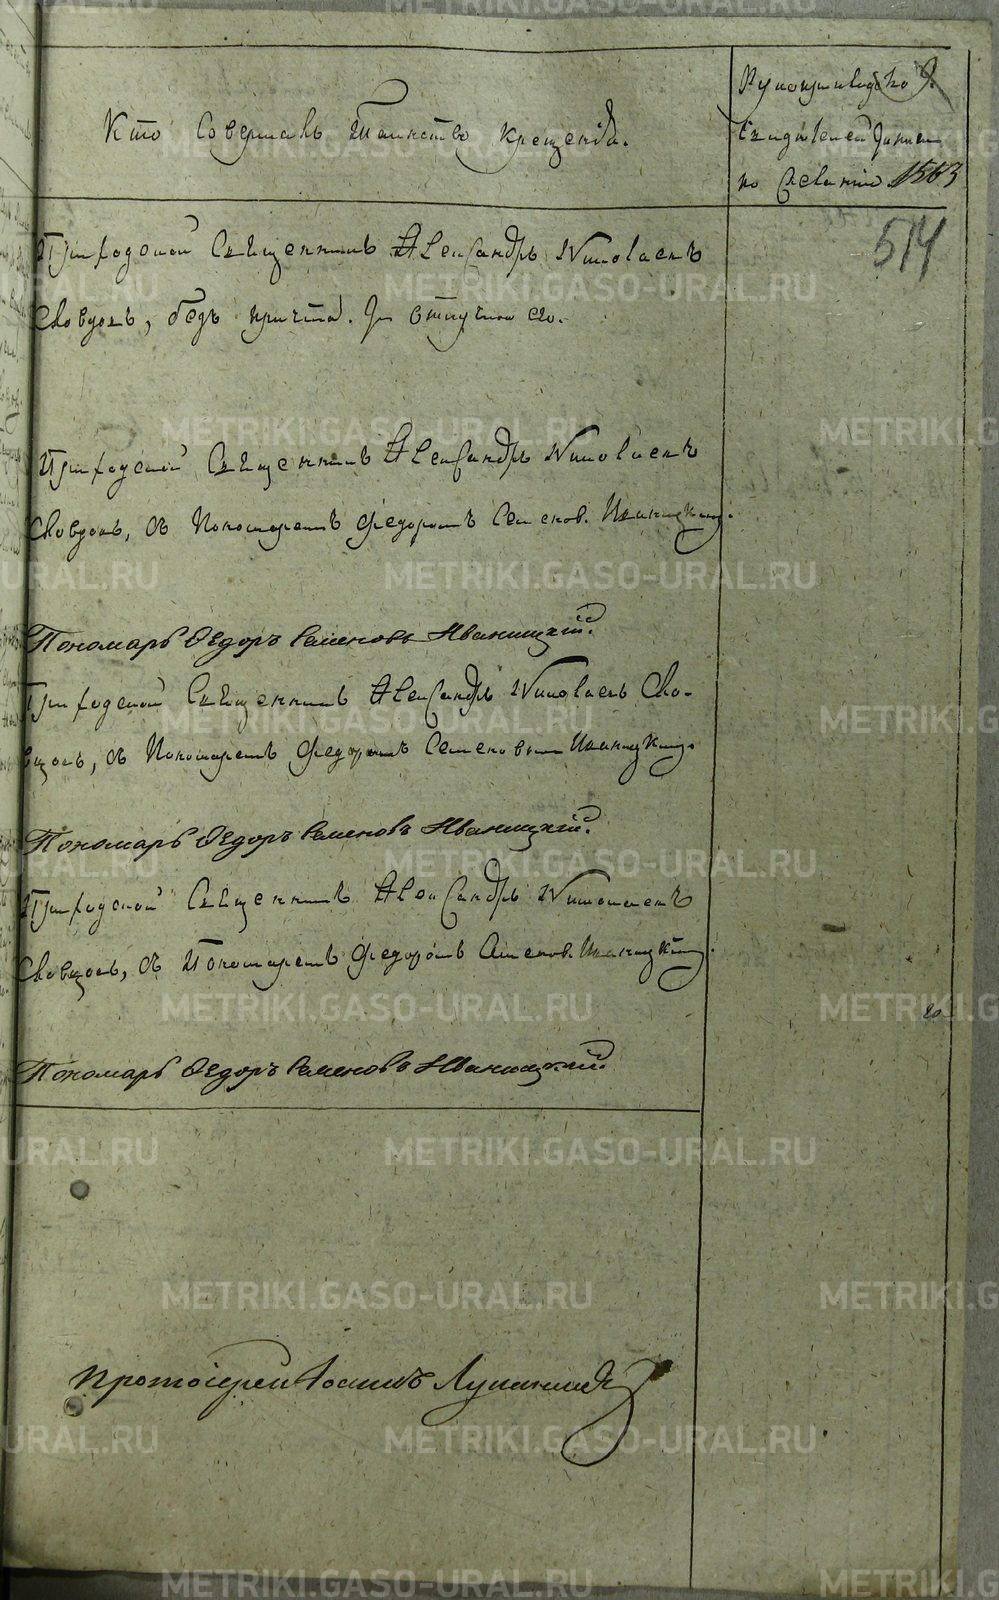 Кто совершалъ таинство крещенія.
Рукоприкладство
свидѣтелей записи
по желанію 1563
514
Приходской Священникъ Александръ Николаевъ
Сковцовъ, безъ причта. За отлучкою его.
Приходской Священникъ Александръ Николаевъ
съ Пономаремъ Федоромъ Семенов. Иваницкимъ.
Пономарь Ѳедоръ Семеновъ Иваницкій.
Приходской Священникъ Александръ Николаевъ
съ Пономаремъ Федоромъ Семеновымъ Иваницкимъ
Пономарь Ѳедоръ Семеновъ Иваницкій.
Приходской Священникъ Александръ Николаевъ
съ Пономаремъ Федоромъ Семенов. Иваницкимъ.
Пономарь Ѳедоръ Семеновъ Иваницкій
Протоіерей Іоаннъ
METRIKI.GASO-URAL.RU